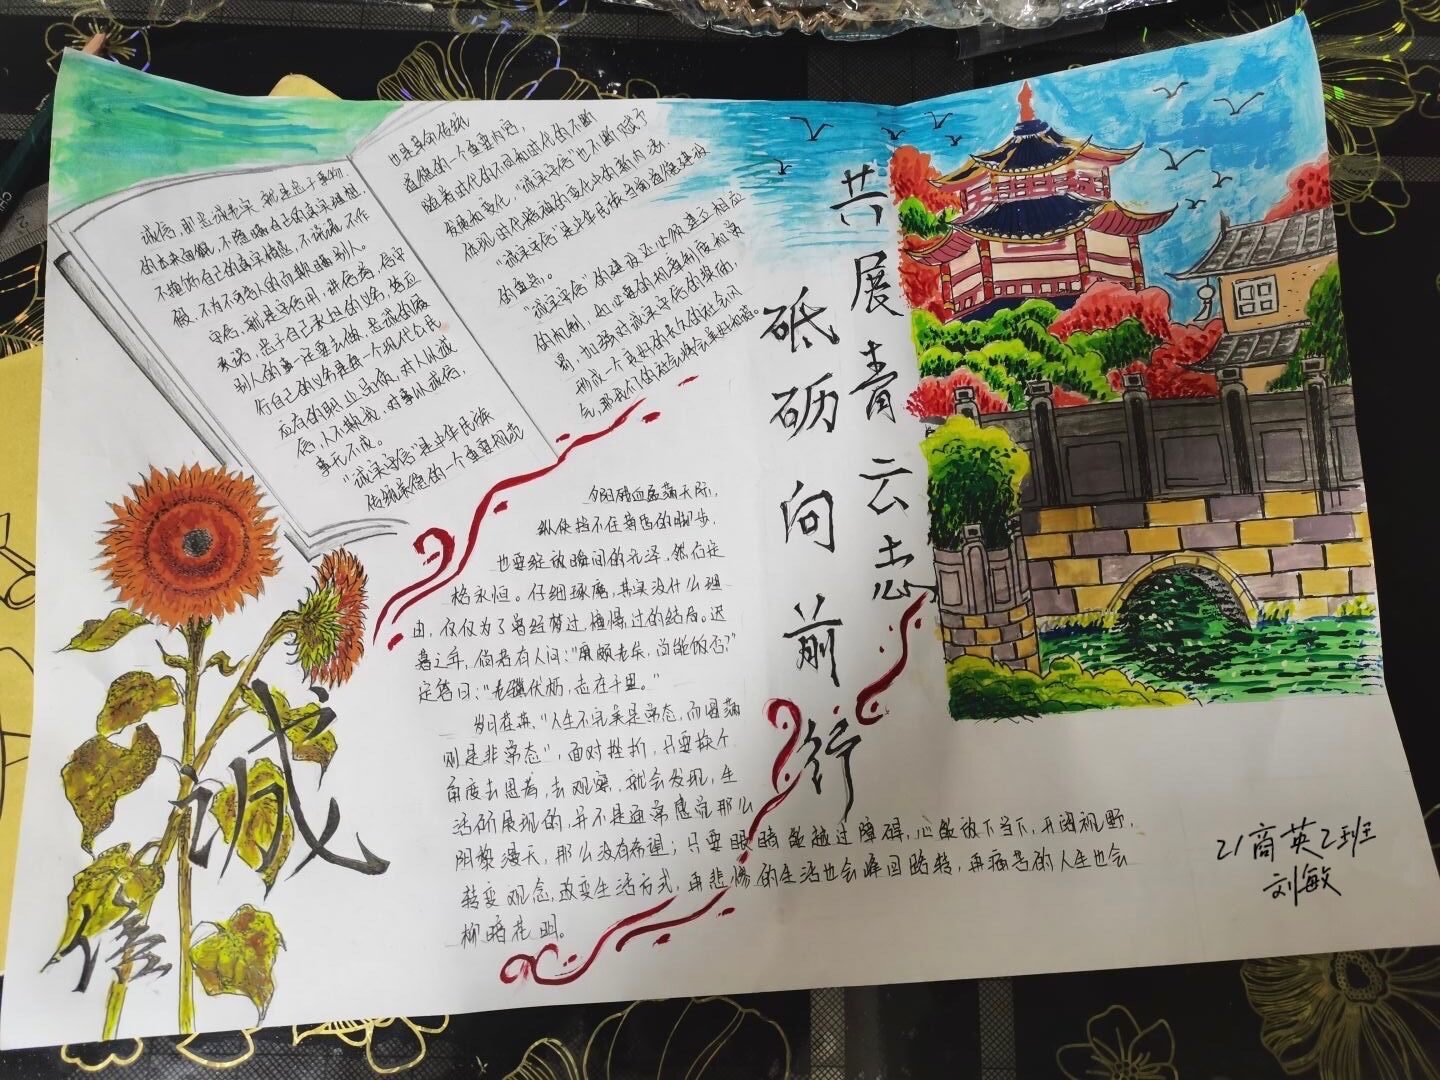 诚信，即是诚是实，就是忠于事物
的本来面貌，不隐瞒自己的真实思想，
不掩饰自己的真实情感，不说谎，不作
假，不为不可告人的而欺瞒别人。
守信，就是守信用，讲信誉，信守
承诺，忠于自己承担的义务，答应
别人的事一定要去做。忠诚的履
行自己的义务是每一个现代公民
应有的职业品质，对人以诚
信，人不欺我，对事以诚信，
事无不成。
“诚实守信”是中华民族
传统美德的一个重要规范
也是革命传统
道德的一个重要内容，
随着时代的不同和时代的不断
发展和变化，“诚实守信”也不断赋予
体现时代脉搏的变化中的新内涵。
“诚实守信”是中华民族当前道德建设
的重点。
“诚实守信”的建设还必须建立相应
的机制，如必要的机查制度和奖
罚，加强对诚实守信的奖励，
形成一个良好的长久的社会风
气，那我们的社会将会美好和谐。
共展青云志
砥砺向前行
夕阳硒血盈满天际，
纵使挡不住黄昏的脚步，
也要绽放瞬间的光泽，然后定
格永恒。仔细琢磨，其实没什么理
由，仅仅为了曾经梦过，憧憬过的结局。迟
暮之年，倘若有人问：“廉颇老矣，尚能饭否？”
定答曰：“老骥伏枥，志在千里。”
岁日荏苒，“人生不完美是常态，而圆满
则是非常态”，面对挫折，只要换个
角度去思考，去观察，就会发现，生
活所展现的，并不是通常感觉那么
阴黎漫天，那么没有希望；只要眼睛能越过障碍，心能放下当下，开阔视野，
转变观念，改变生活方式，再悲惨的生活也会峰回路转，再痛苦的人生也会
柳暗花明。
诚
信
21商英2班
刘敏